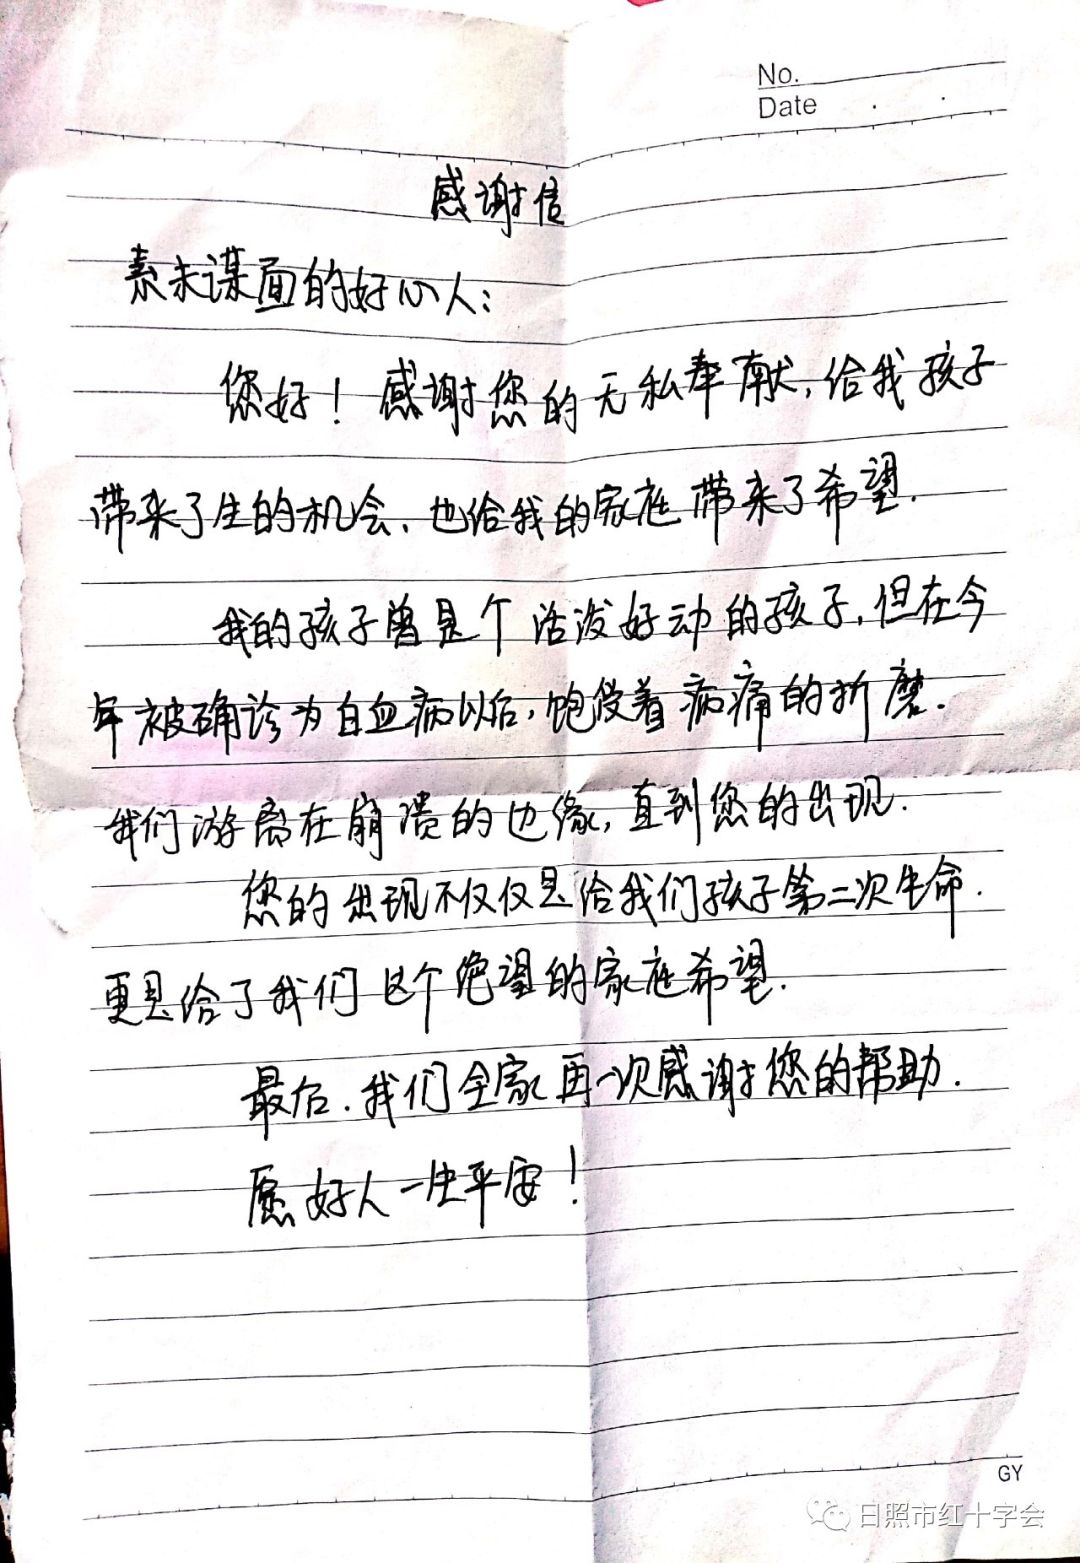 No.
Date
感谢信
素未谋面的好心人：
您好！感谢您的无私奉献，给我孩子
带来了生的机会、也给我的家庭带来了希望.
我的孩子曾是个活泼好动的孩子，但在今
年被确诊为白血病以后，饱受着病痛的折磨.
我们游离在崩溃的边缘，直到您的出现.
您的出现不仅仅是给我们孩子第二次生命.
更是给了我们这个绝望的家庭希望.
最后.我们全家再一次感谢您的帮助.
愿好人一生平安！
GY
日照市红十字会